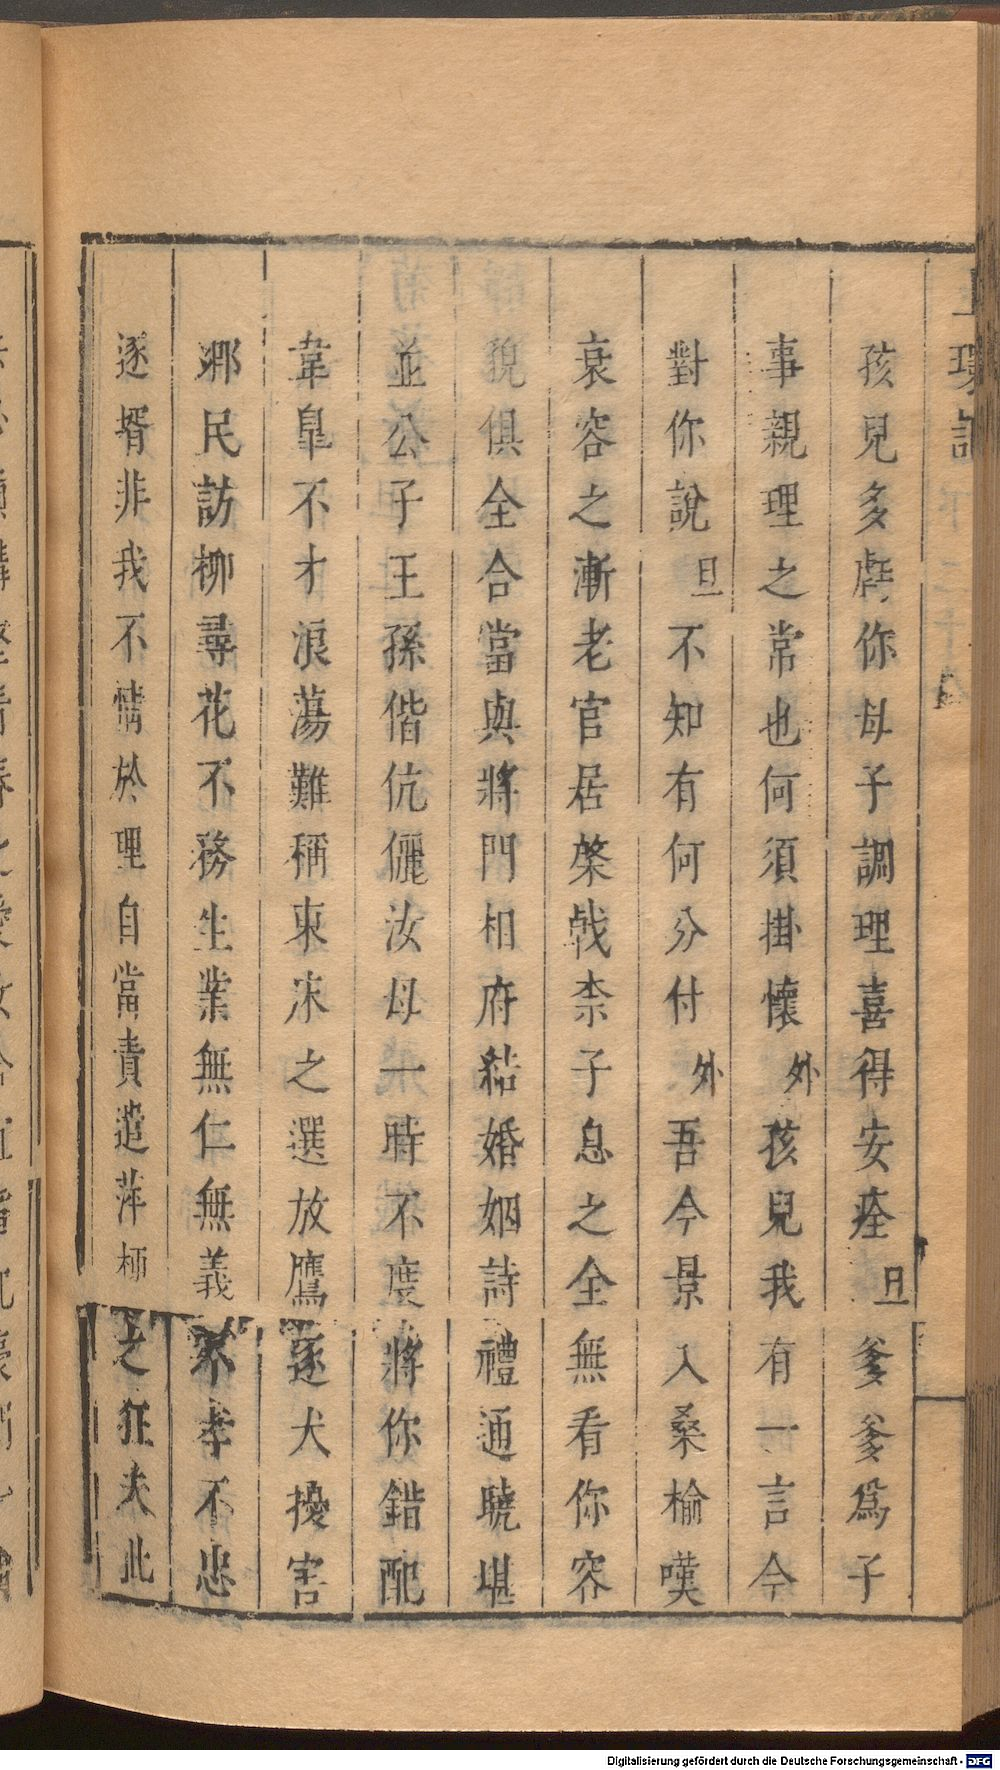 玉環記
孩兒多虧你母子調理喜得安痊 旦 爹爹爲子
事親理之常也何須掛懷 外 孩兒我有一言今
對你說 旦 不知有何分付 外 吾今景入桑榆嘆
衰容之漸老官居棨戟柰子息之全無看你容
貌俱全合當與將門相府結婚姻詩禮通曉堪
並公子王孫偕伉儷汝母一時不度將你錯配
韋皐不才浪蕩難稱東床之選放鷹逐犬擾害
鄉民訪柳尋花不務生業無仁無義不孝不忠
逐壻非我不情於理自當責遣萍梗之狂夫此
Digitalisierung gefördert durch die Deutsche Forschungsgemeinschaft - DFG